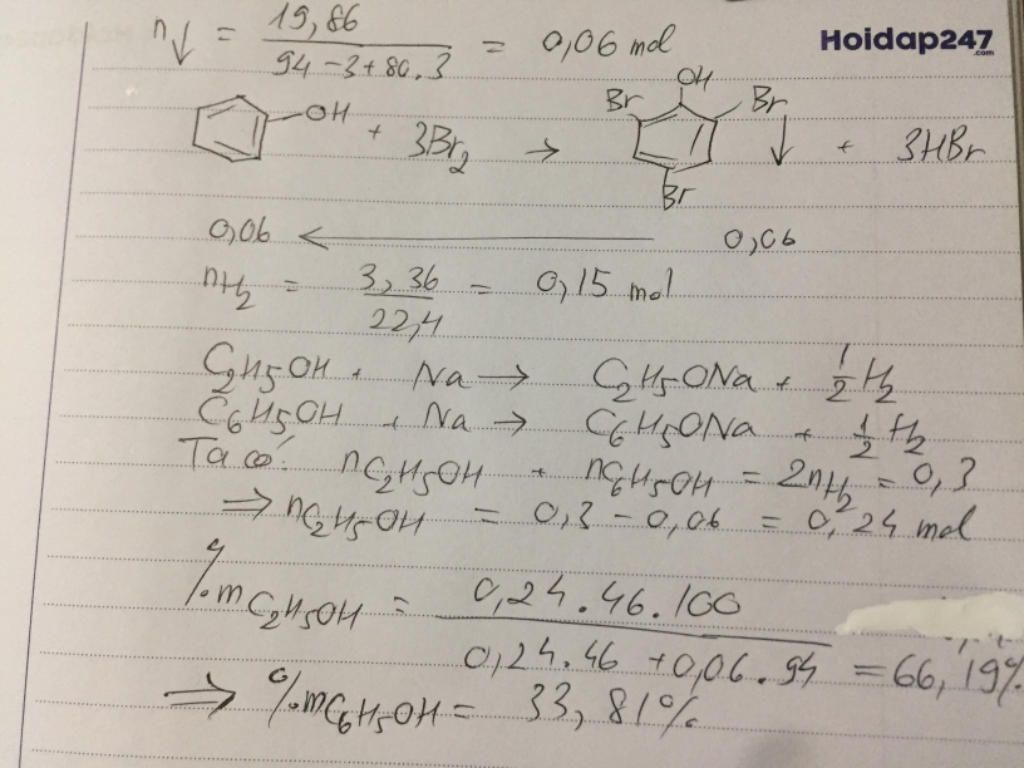 n↓ = 19,86 / 94 - 3 + 80.3 = 0,06 mol
Hoidap247
.com
OH + 3Br2 → OH Br Br Br ↓ + 3HBr
0,06 ← 0,06
nH2 = 3,36 / 22,4 = 0,15 mol
C2H5OH + Na → C2H5ONa + 1/2 H2
C6H5OH + Na → C6H5ONa + 1/2 H2
Ta có: nC2H5OH + nC6H5OH = 2nH2 = 0,3
⇒ nC2H5OH = 0,3 - 0,06 = 0,24 mol
%mC2H5OH = 0,24.46.100 / 0,24.46 + 0,06.94 = 66,19%
⇒ %mC6H5OH = 33,81%